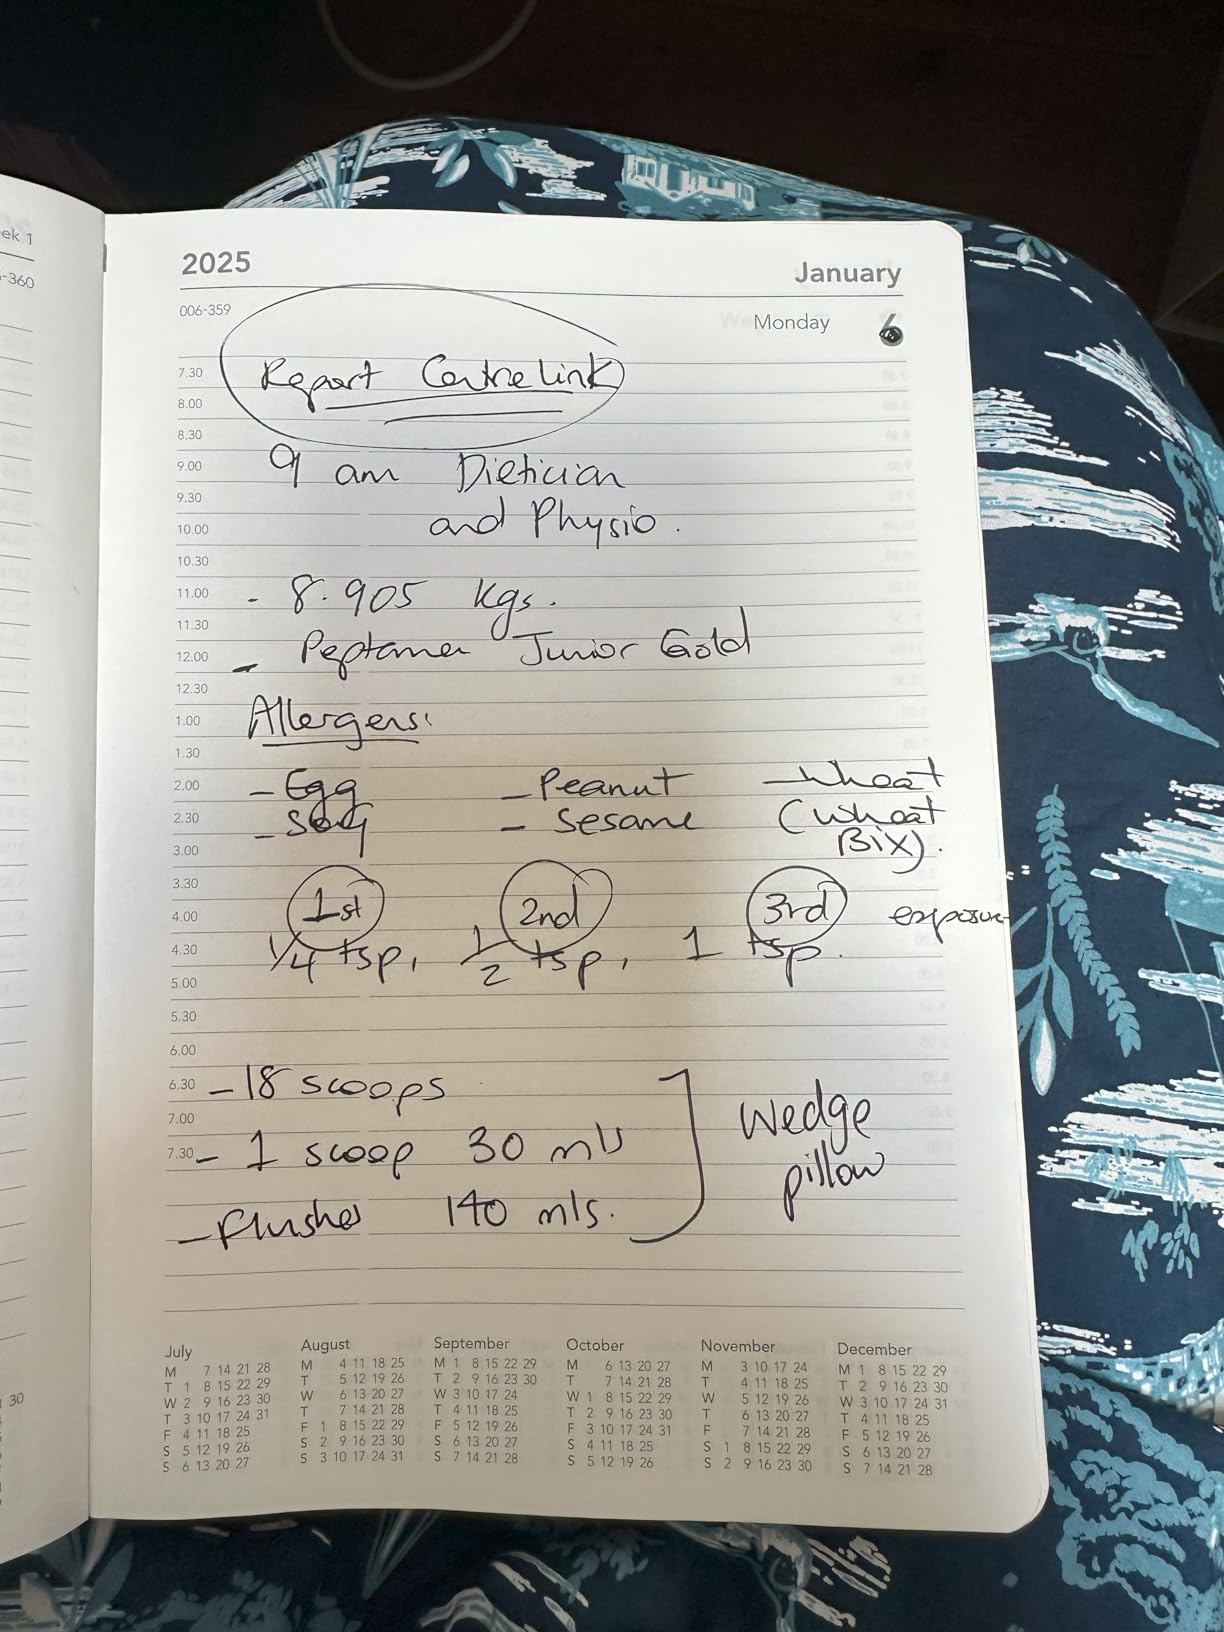 eek 1
-360
30
2025
January
006-359
Monday 6
7.30 Report Centrelink
8.00
8.30
9.00 9 am Dietician
9.30
10.00 and Physio.
10.30
11.00 - 8.905 kgs.
11.30
12.00 - Peptamen Junior Gold
12.30
1.00 Allergens:
1.30
2.00 - Egg - Peanut - Wheat
2.30 - Soy - Sesame (Wheat
3.00 Bix).
3.30
4.00 1st 2nd 3rd exposure
4.30 1/4 tsp, 1/2 tsp, 1 tsp.
5.00
5.30
6.00
6.30 - 18 scoops
7.00
7.30 - 1 scoop 30 mls
- Flushes 140 mls.
Wedge
pillow
July
M 7 14 21 28
T 1 8 15 22 29
W 2 9 16 23 30
T 3 10 17 24 31
F 4 11 18 25
S 5 12 19 26
S 6 13 20 27
August
M 4 11 18 25
T 5 12 19 26
W 6 13 20 27
T 7 14 21 28
F 1 8 15 22 29
S 2 9 16 23 30
S 3 10 17 24 31
September
M 1 8 15 22 29
T 2 9 16 23 30
W 3 10 17 24
T 4 11 18 25
F 5 12 19 26
S 6 13 20 27
S 7 14 21 28
October
M 6 13 20 27
T 7 14 21 28
W 1 8 15 22 29
T 2 9 16 23 30
F 3 10 17 24 31
S 4 11 18 25
S 5 12 19 26
November
M 3 10 17 24
T 4 11 18 25
W 5 12 19 26
T 6 13 20 27
F 7 14 21 28
S 1 8 15 22 29
S 2 9 16 23 30
December
M 1 8 15 22 29
T 2 9 16 23 30
W 3 10 17 24 31
T 4 11 18 25
F 5 12 19 26
S 6 13 20 27
S 7 14 21 28